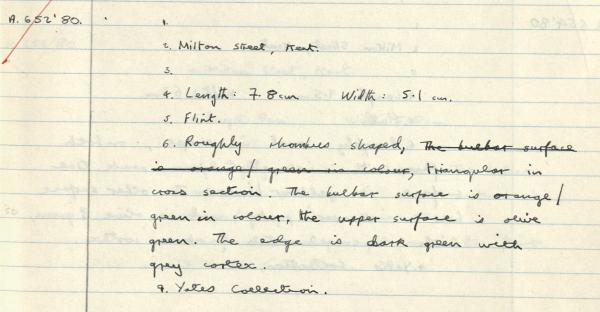 A.652'80.
1.
2. Milton Street, Kent.
3.
4. Length: 7.8cm Width: 5.1 cm.
5. Flint.
6. Roughly rhombus shaped, The bulbar surface
is orange/ green in colour, triangular in
cross section. The bulbar surface is orange/
green in colour, the upper surface is olive
green. The edge is dark green with
grey cortex.
9. Yates Collection.